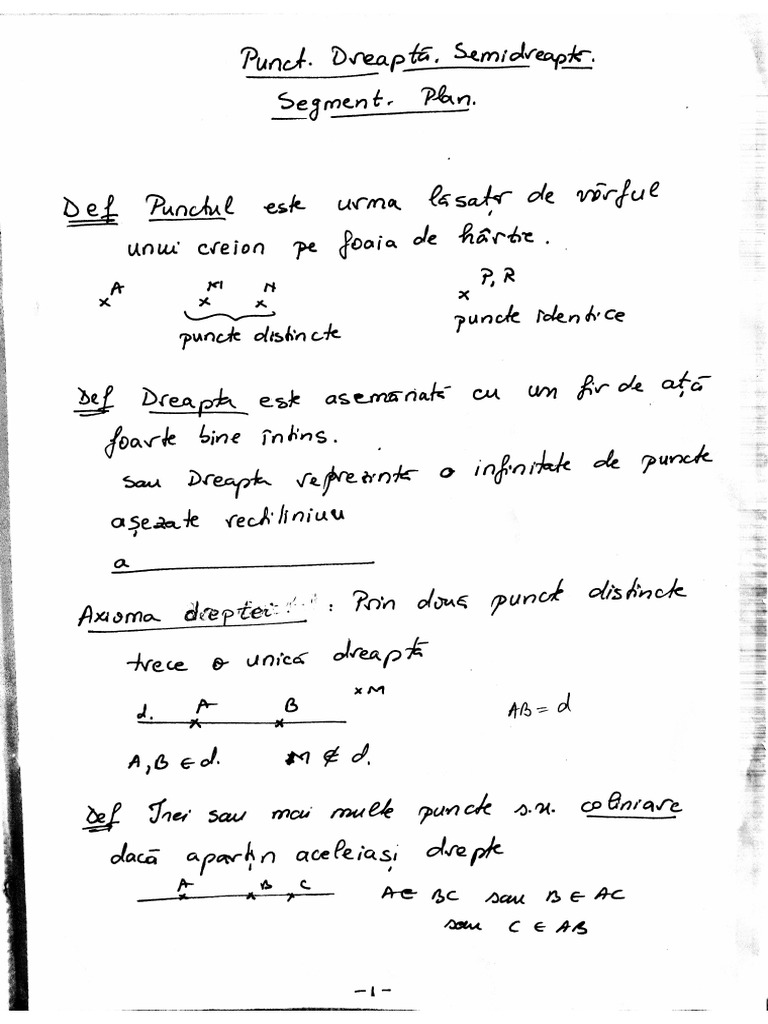 Punct. Dreaptă. Semidreaptă.
Segment. Plan.
Def Punctul este urma lăsată de vârful
unui creion pe foaia de hârtie.
A M N P, R
puncte distincte puncte identice
Def Dreapta este asemănată cu un fir de ață
foarte bine întins.
sau Dreapta reprezintă o infinitate de puncte
așezate rectiliniu
a
Axioma dreptei : Prin două puncte distincte
trece o unică dreaptă
d. A B x M AB = d
A, B ∈ d. M ∉ d.
Def Trei sau mai multe puncte s.n. coliniare
dacă aparțin aceleiași drepte
A B C A ∈ BC sau B ∈ AC
sau C ∈ AB
-1-